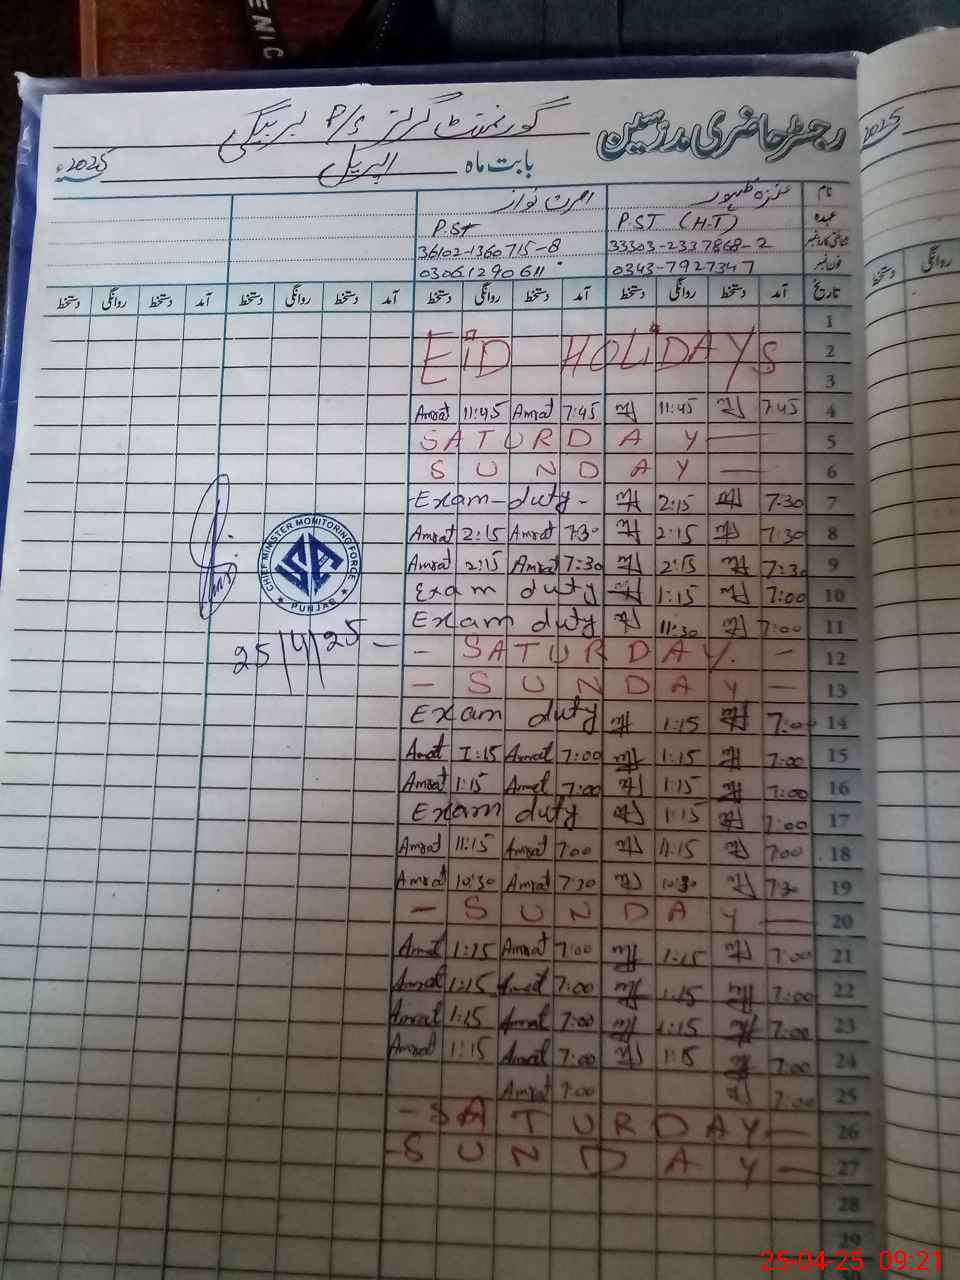 ENIC
رجسٹر حاضری مدرسین
گورنمنٹ گرلز P/S
بابت ماہ اپریل 2025ء
2025
نام منزہ ظہور امرت نواز
عہدہ P.ST (H.T) P.ST
شناختی کارڈ نمبر 33303-2337868-2 36102-1360715-8
فون نمبر 0343-7927347 03061290611
تاریخ آمد دستخط روانگی دستخط آمد دستخط روانگی دستخط آمد دستخط روانگی دستخط آمد دستخط روانگی دستخط
روانگی دستخط
1
2 EID HOLIDAYS
3
4 7:45 11:45 7:45 Amrat 11:45 Amrat
5 SATURDAY
6 SUNDAY
7 7:30 2:15 Exam-duty-
8 7:30 2:15 7:30 Amrat 2:15 Amrat
9 7:30 2:15 7:30 Amrat 2:15 Amrat
10 7:00 1:15 Exam duty
11 7:00 11:30 Exam duty
12 - SATURDAY. -
13 - SUNDAY -
14 7:00 1:15 Exam duty
15 7:00 1:15 7:00 Amrat 1:15 Amrat
16 7:00 1:15 7:00 Amrat 1:15 Amrat
17 7:00 1:15 Exam duty
18 7:00 11:15 7:00 Amrat 11:15 Amrat
19 7:30 10:30 7:30 Amrat 10:30 Amrat
20 - SUNDAY -
21 7:00 1:15 7:00 Amrat 1:15 Amrat
22 7:00 1:15 7:00 Amrat 1:15 Amrat
23 7:00 1:15 7:00 Amrat 1:15 Amrat
24 7:00 1:15 7:00 Amrat 1:15 Amrat
25 7:00 7:00 Amrat
26 - SATURDAY -
27 - SUNDAY -
28
29
CHIEF MINSTER MONITORING FORCE
PUNJAB
25/4/25
25-04-25 09:21